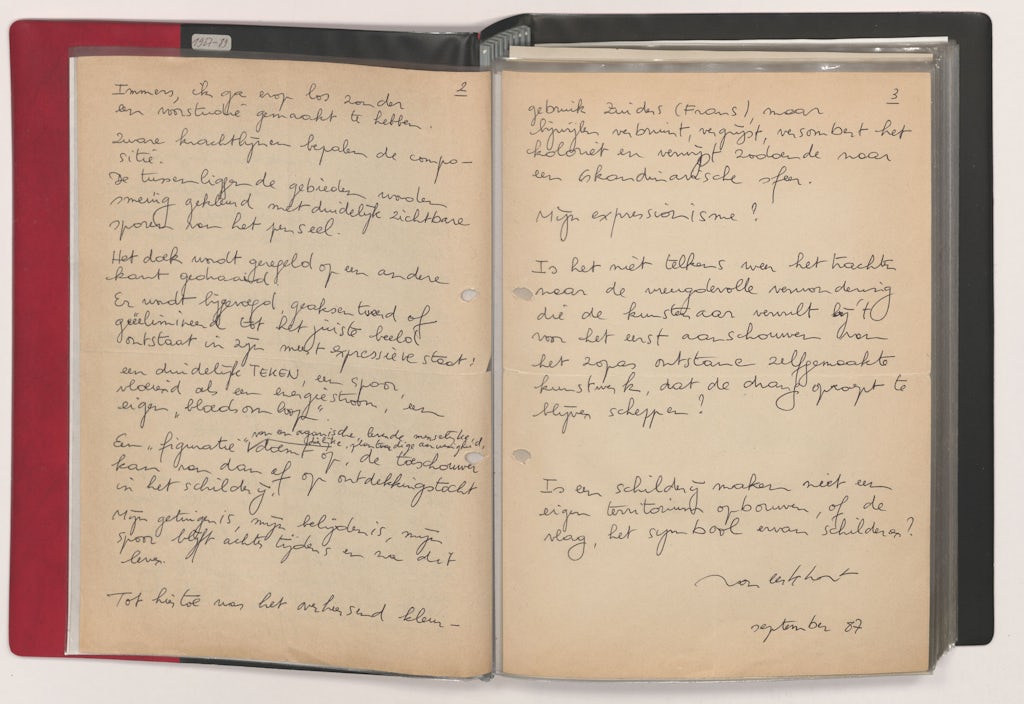 1967-89
2
Immers, ik ga erop los zonder
een vorstudie gemaakt te hebben.
Zware krachtlijnen bepalen de compo-
sitie.
De tussenliggende gebieden worden
smeuïg gekleurd met duidelijk zichtbare
sporen van het penseel.
Het doek wordt geregeld op een andere
kant gedraaid.
Er wordt bijgevoegd, geaksentueerd of
geëlimineerd tot het juiste beeld
ontstaat in zijn meest expressieve staat:
een duidelijk TEKEN, een spoor,
vloeiend als een energiestroom, een
eigen „bloedsomloop".
van en organische, levende menselijkheid,
dierlijke, plantaardige aanwezigheid,
Een „figuratie" doemt op, de toeschouwer
kan van dan af op ontdekkingstocht
in het schilderij.
Mijn getuigenis, mijn belijdenis, mijn
spoor blijft achter tijdens en na dit
leven.
Tot hiertoe was het overheersend kleur-
3
gebruik Zuiders (Frans), maar
bijwijlen verbruint, vergrijst, versombert het
koloriet en verwijst zodoende naar
een Skandinavische sfeer.
Mijn expressionisme?
Is het niet telkens weer het trachten
naar de vreugdevolle verwondering
die de kunstenaar vervult bij 't
voor het eerst aanschouwen van
het zopas ontstane zelfgemaakte
kunstwerk, dat de drang oproept te
blijven scheppen?
Is een schilderij maken niet een
eigen territorium opbouwen, of de
vlag, het symbool ervan schilderen?
van eeckhout
september 87